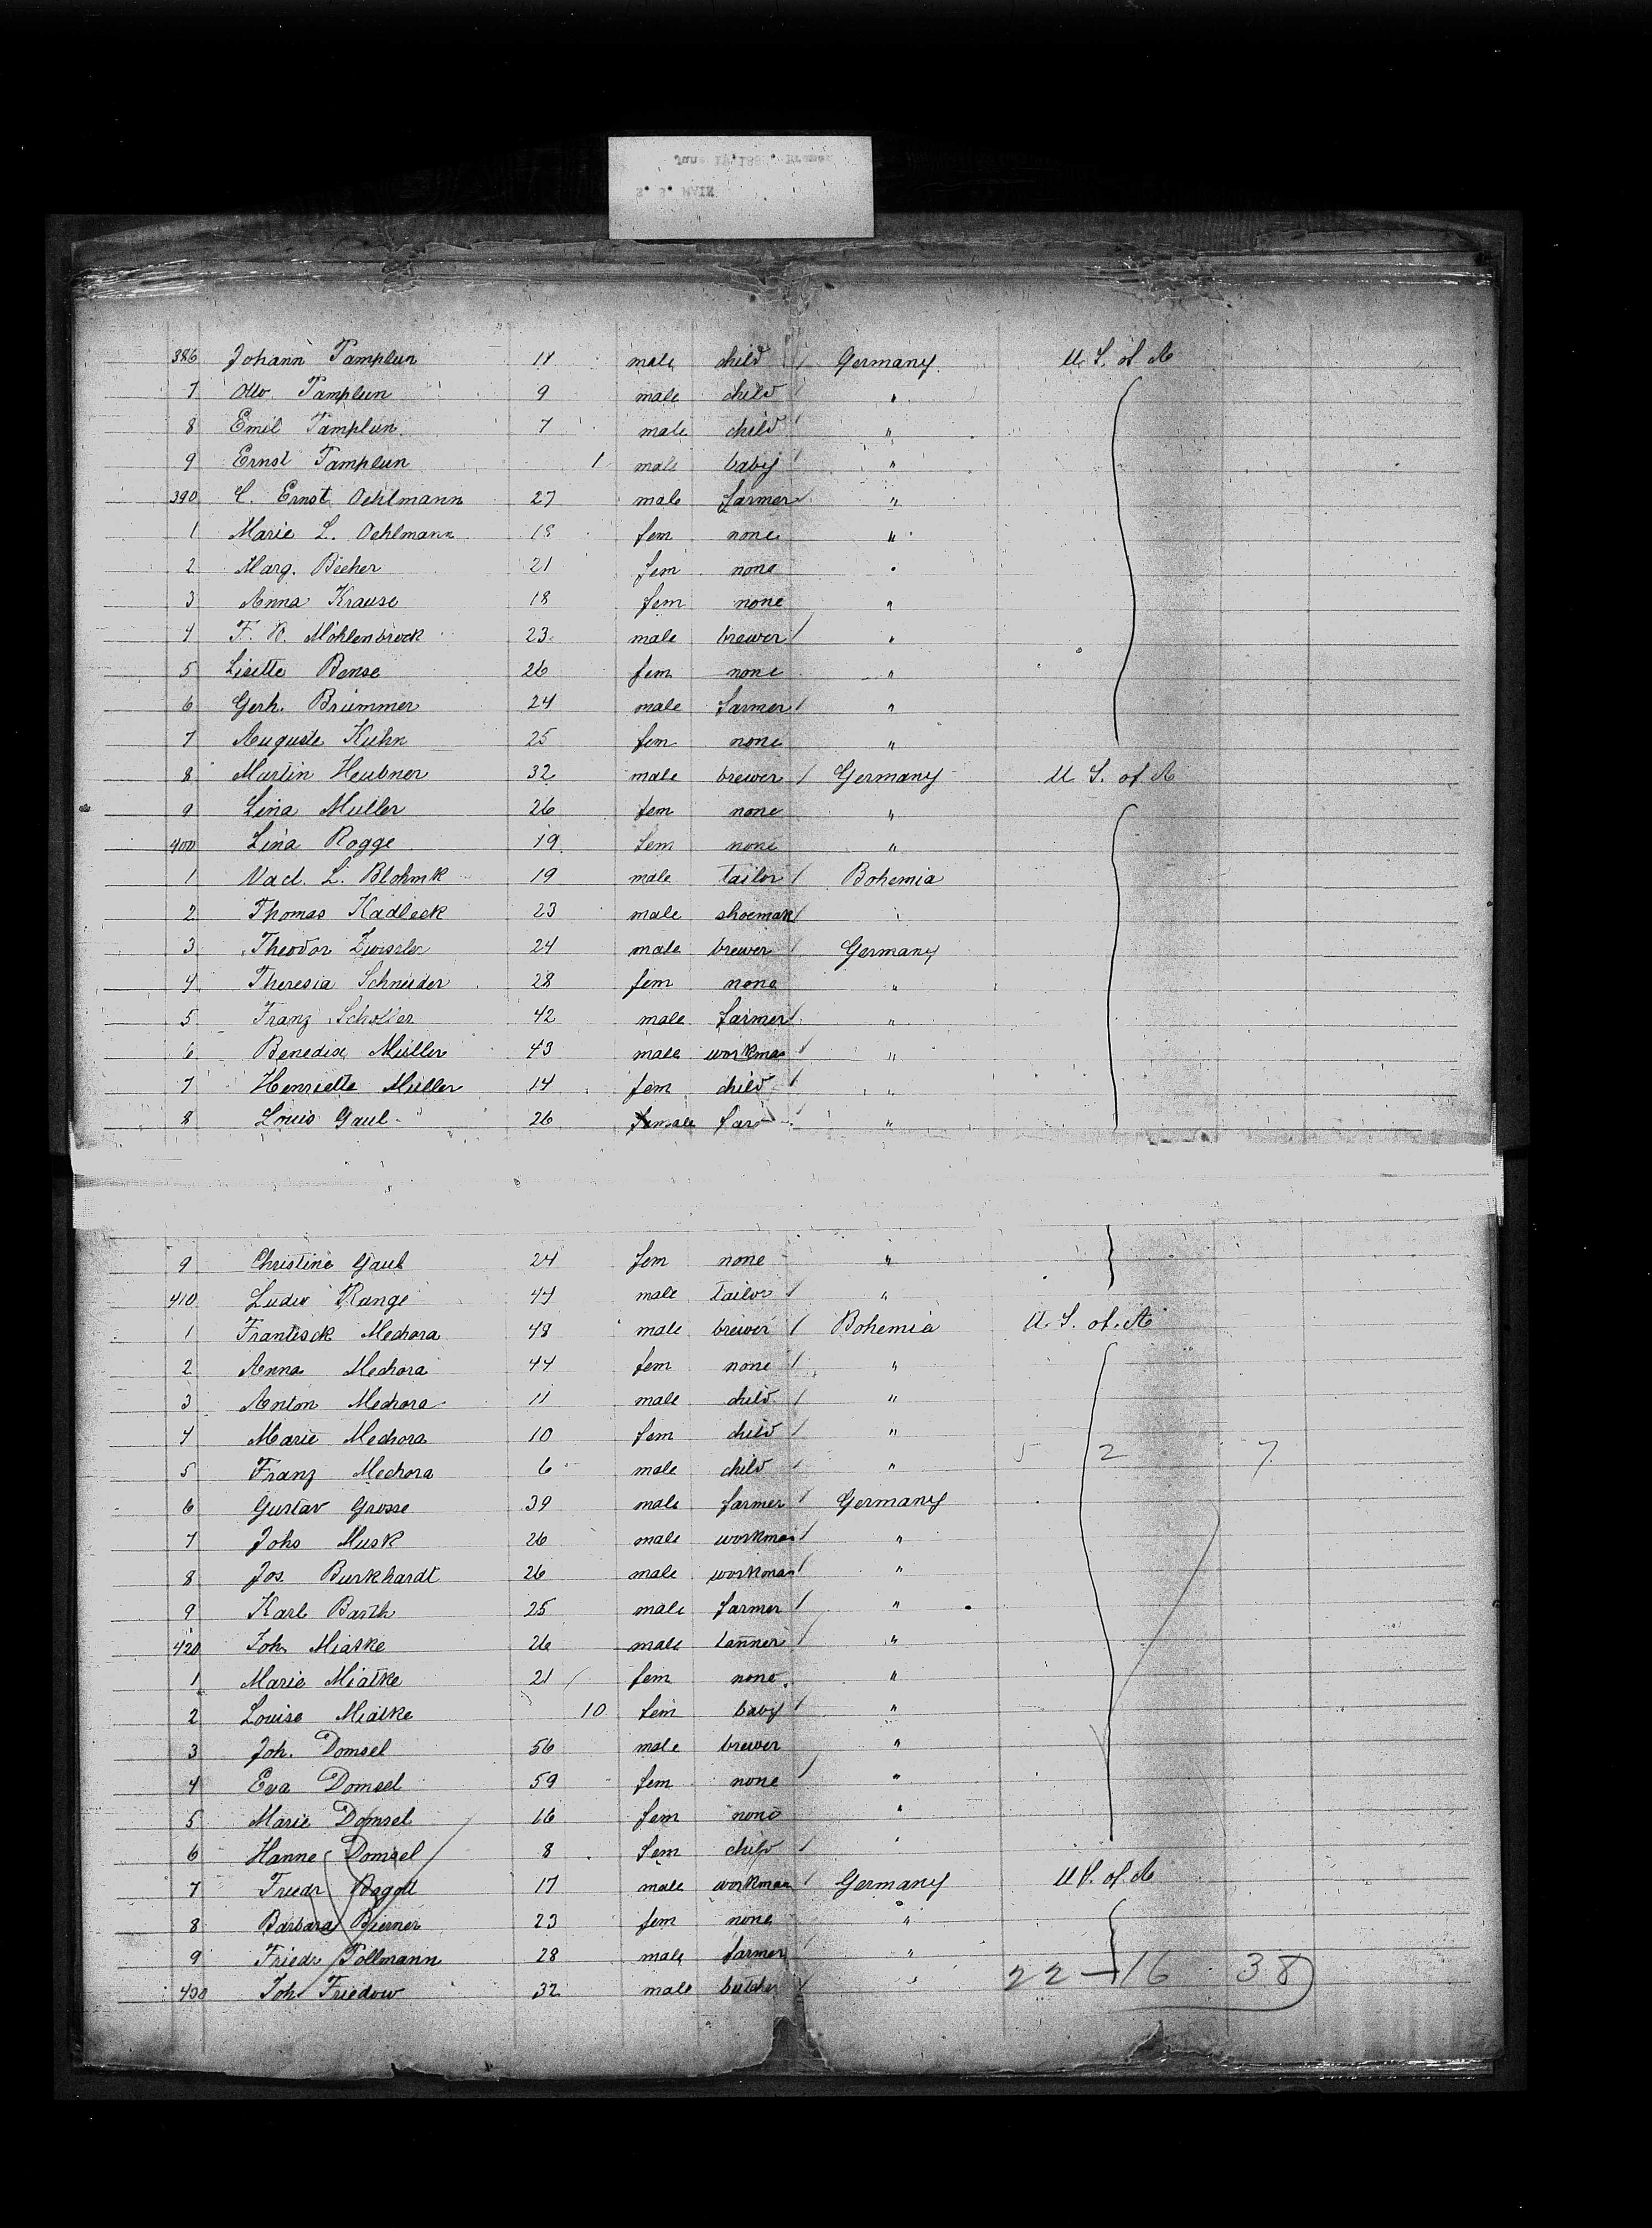 S. S. MAIN
386 Johann Tamplun 11 male child / Germany U. S. of A
7 Otto Tamplun 9 male child / "
8 Emil Tamplun 7 male child / "
9 Ernst Tamplun 1 male baby / "
390 C. Ernst Oehlmann 27 male farmer / "
1 Marie L. Oehlmann fem none "
2 Marg. Becher 21 fem none "
3 Anna Krause 18 fem none "
4 F. K. Möhlenbrock 23 male brewer / "
5 Lisette Bense 26 fem none "
6 Gerh. Brümmer 24 male farmer / "
7 Auguste Kuhn 25 fem none "
8 Martin Heubner 32 male brewer / Germany U. S. of A
9 Lina Müller 26 fem none "
400 Lina Rogge 19 fem none "
1 Vacl. L. 19 male tailor / Bohemia
2 Thomas Kadleck 23 male shoemak / "
3 Theodor 24 male brewer / Germany
4 Theresia Schneider 28 fem none "
5 Franz 42 male farmer / "
6 Benedix Müller 43 male workman / "
7 Henriette Müller 14 fem child / "
8 Louis Gaul 26 male far "
9 Christine Gaul 24 fem none "
410 Ludw Range 44 male tailor / "
1 Frantisek Mechora 48 male brewer / Bohemia U. S. of A
2 Anna Mechora 44 fem none / "
3 Anton Mechora 11 male child / "
4 Marie Mechora 10 fem child / "
5 Franz Mechora 6 male child / " 5 2 7
6 Gustav Grosse 39 male farmer / Germany
7 Johs Musk 26 male workman / "
8 Jos. Burkhardt 26 male workman / "
9 Karl Barth 25 male farmer / "
420 Joh. Miatke 26 male tanner / "
1 Marie Miatke 21 / fem none "
2 Louise Miatke 10 fem baby / "
3 Joh. Domsel 56 male brewer "
4 Eva Domsel 59 fem none / "
5 Marie Domsel 16 fem none "
6 Hanne Domsel 8 fem child / "
7 Friedr 17 male workman / Germany U S. of A
8 Barbara Bierner 23 fem none "
9 Friedr Pollmann 28 male farmer / "
430 Joh Friedow 32 male butcher / " 22 – 16 38